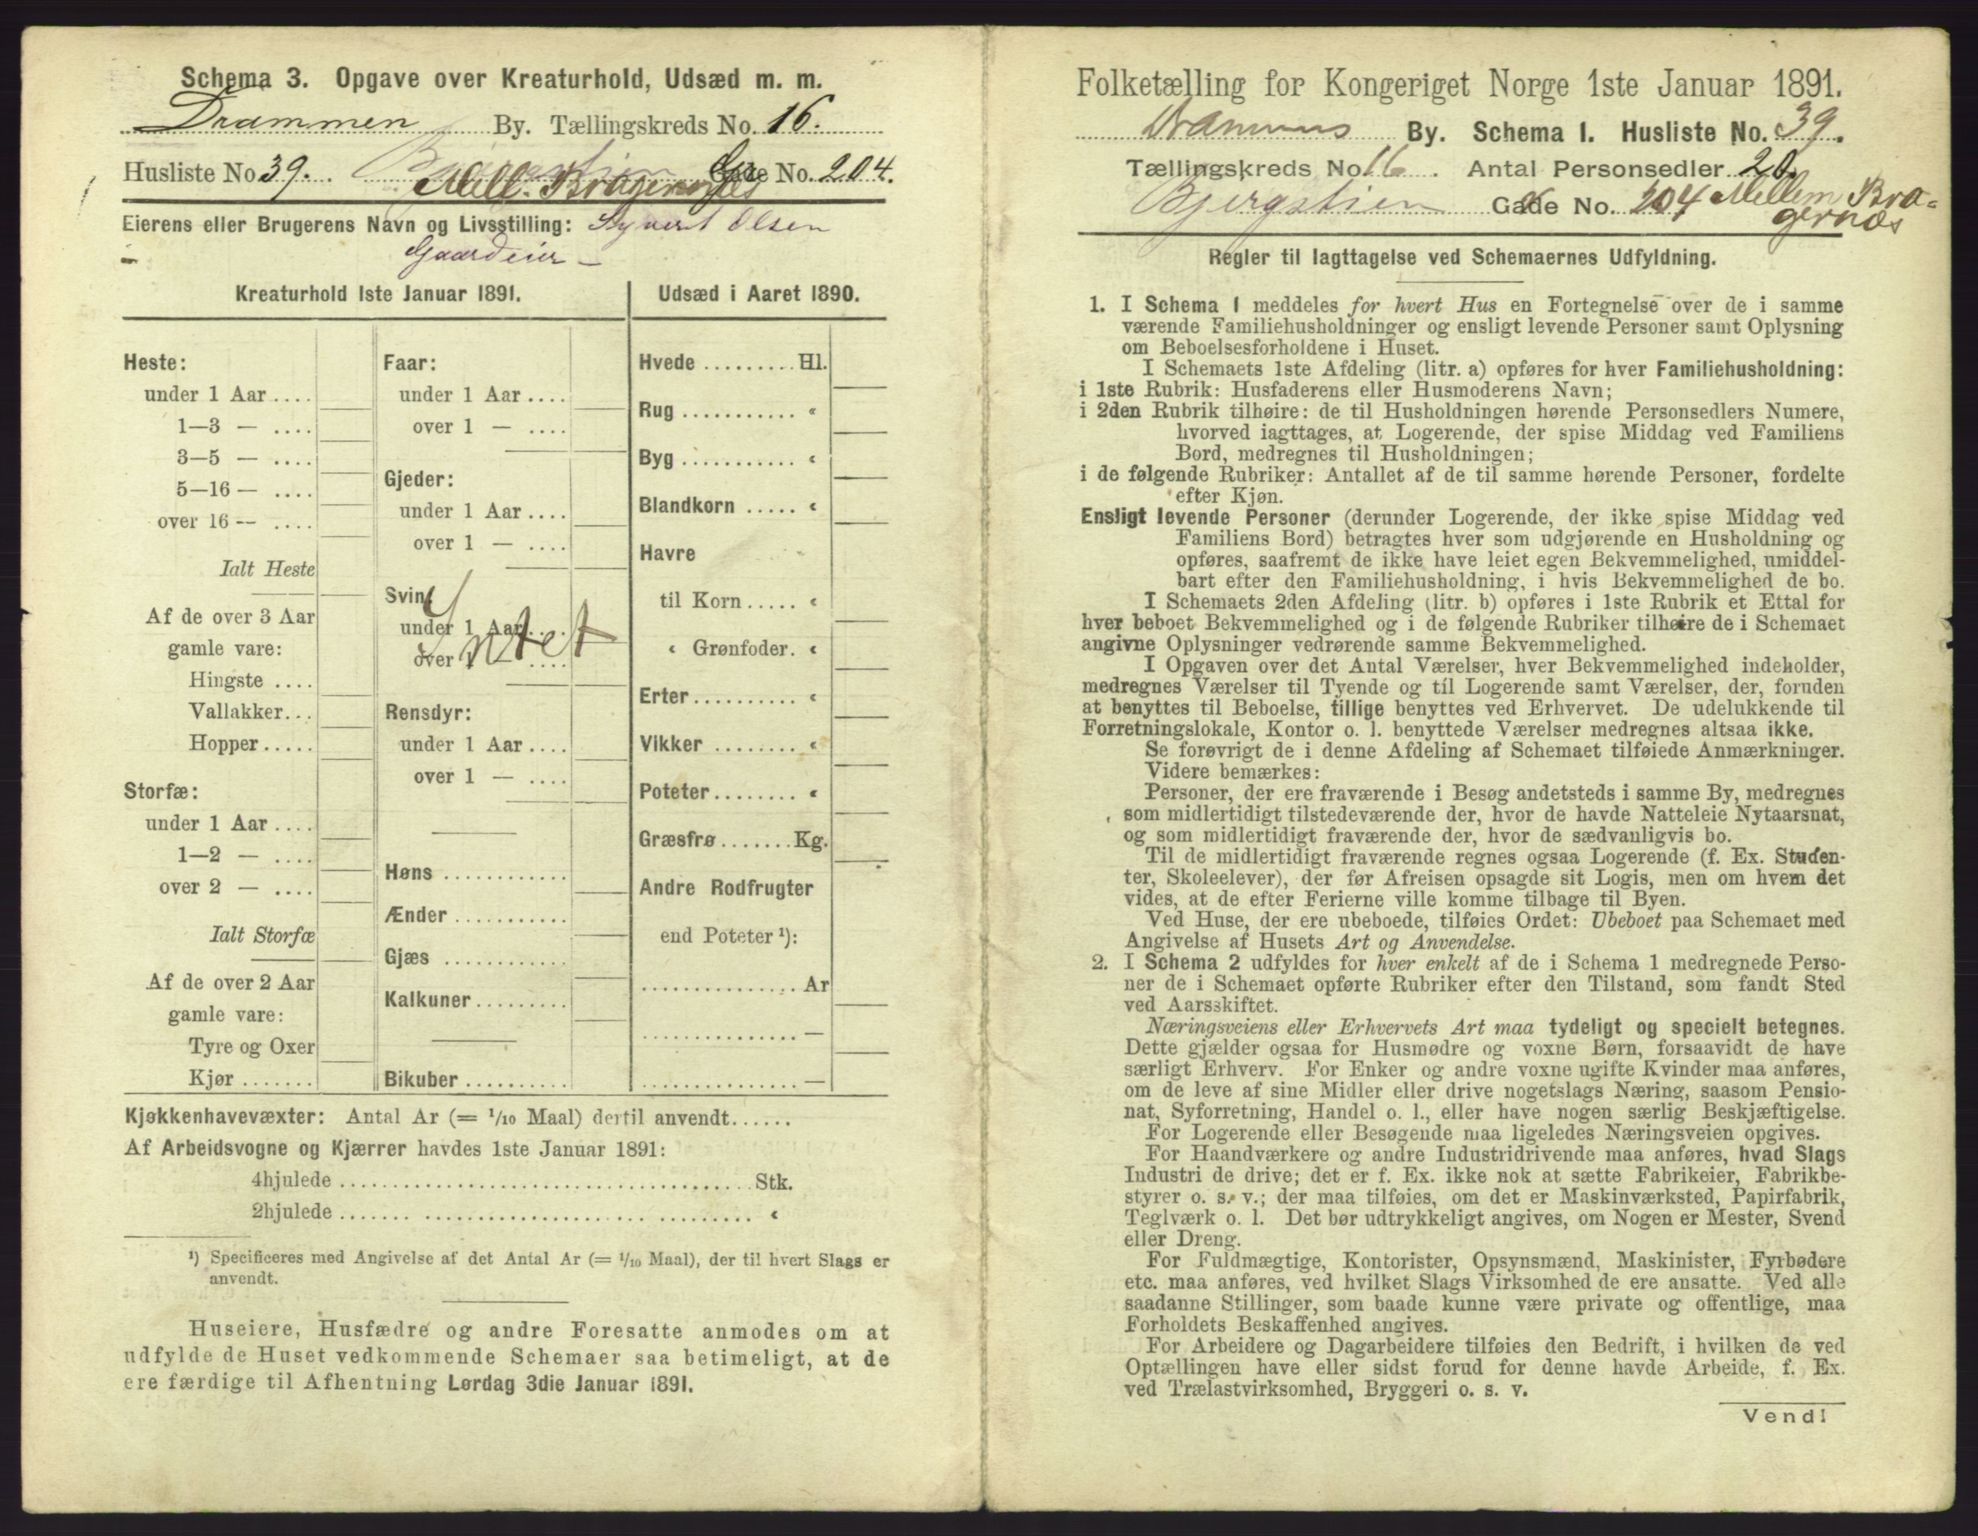 Schema 3. Opgave over Kreaturhold, Udsæd m. m.
Drammen By. Tællingskreds No. 16.
Husliste No 39. Bjergstien Gade No. 204.
Mell. Bragernæs
Eierens eller Brugerens Navn og Livsstilling: Syvert Olsen
Gaardeier
Kreaturhold 1ste Januar 1891.
Heste:
under 1 Aar ....
1—3 — ....
3—5 — ....
5—16 — ....
over 16 — ....
Ialt Heste
Af de over 3 Aar
gamle vare:
Hingste ....
Vallakker...
Hopper.....
Storfæ:
under 1 Aar ....
1—2 — ....
over 2 — ....
Ialt Storfæ
Af de over 2 Aar
gamle vare:
Tyre og Oxer
Kjør .......
Faar:
under 1 Aar ....
over 1 — ....
Gjeder:
under 1 Aar ....
over 1 — ....
Svin:
under 1 Aar ....
over 1 — ....
Intet
Rensdyr:
under 1 Aar ....
over 1 — ....
Høns ............
Ænder ...........
Gjæs ............
Kalkuner.........
Bikuber ..........
Udsæd i Aaret 1890.
Hvede ......... Hl.
Rug ........... "
Byg ........... "
Blandkorn ..... "
Havre
til Korn ..... "
" Grønfoder. "
Erter .......... "
Vikker ......... "
Poteter ........ "
Græsfrø ....... Kg.
Andre Rodfrugter
end Poteter ¹):
............... Ar
............... —
............... —
Kjøkkenhavevæxter: Antal Ar (= 1/10 Maal) dertil anvendt......
Af Arbeidsvogne og Kjærrer havdes 1ste Januar 1891:
4hjulede ...................................... Stk.
2hjulede ...................................... "
¹) Specificeres med Angivelse af det Antal Ar (= 1/10 Maal), der til hvert Slags er
anvendt.
Huseiere, Husfædre og andre Foresatte anmodes om at
udfylde de Huset vedkommende Schemaer saa betimeligt, at de
ere færdige til Afhentning Lørdag 3die Januar 1891.
Folketælling for Kongeriget Norge 1ste Januar 1891.
Drammens By. Schema 1. Husliste No. 39.
Tællingskreds No 16. Antal Personsedler 20.
Bjergstien Gade No. 204 Mellem Bra-
gernæs
Regler til Iagttagelse ved Schemaernes Udfyldning.
1. I Schema 1 meddeles for hvert Hus en Fortegnelse over de i samme
værende Familiehusholdninger og ensligt levende Personer samt Oplysning
om Beboelsesforholdene i Huset.
I Schemaets 1ste Afdeling (litr. a) opføres for hver Familiehusholdning:
i 1ste Rubrik: Husfaderens eller Husmoderens Navn;
i 2den Rubrik tilhøire: de til Husholdningen hørende Personsedlers Numere,
hvorved iagttages, at Logerende, der spise Middag ved Familiens
Bord, medregnes til Husholdningen;
i de følgende Rubriker: Antallet af de til samme hørende Personer, fordelte
efter Kjøn.
Ensligt levende Personer (derunder Logerende, der ikke spise Middag ved
Familiens Bord) betragtes hver som udgjørende en Husholdning og
opføres, saafremt de ikke have leiet egen Bekvemmelighed, umiddel-
bart efter den Familiehusholdning, i hvis Bekvemmelighed de bo.
I Schemaets 2den Afdeling (litr. b) opføres i 1ste Rubrik et Ettal for
hver beboet Bekvemmelighed og i de følgende Rubriker tilhøire de i Schemaet
angivne Oplysninger vedrørende samme Bekvemmelighed.
I Opgaven over det Antal Værelser, hver Bekvemmelighed indeholder,
medregnes Værelser til Tyende og til Logerende samt Værelser, der, foruden
at benyttes til Beboelse, tillige benyttes ved Erhvervet. De udelukkende til
Forretningslokale, Kontor o. l. benyttede Værelser medregnes altsaa ikke.
Se forøvrigt de i denne Afdeling af Schemaet tilføiede Anmærkninger.
Videre bemærkes:
Personer, der ere fraværende i Besøg andetsteds i samme By, medregnes
som midlertidigt tilstedeværende der, hvor de havde Natteleie Nytaarsnat,
og som midlertidigt fraværende der, hvor de sædvanligvis bo.
Til de midlertidigt fraværende regnes ogsaa Logerende (f. Ex. Studen-
ter, Skoleelever), der før Afreisen opsagde sit Logis, men om hvem det
vides, at de efter Ferierne ville komme tilbage til Byen.
Ved Huse, der ere ubeboede, tilføies Ordet: Ubeboet paa Schemaet med
Angivelse af Husets Art og Anvendelse.
2. I Schema 2 udfyldes for hver enkelt af de i Schema 1 medregnede Perso-
ner de i Schemaet opførte Rubriker efter den Tilstand, som fandt Sted
ved Aarsskiftet.
Næringsveiens eller Erhvervets Art maa tydeligt og specielt betegnes.
Dette gjælder ogsaa for Husmødre og voxne Børn, forsaavidt de have
særligt Erhverv. For Enker og andre voxne ugifte Kvinder maa anføres,
om de leve af sine Midler eller drive nogetslags Næring, saasom Pensio-
nat, Syforretning, Handel o. l., eller have nogen særlig Beskjæftigelse.
For Logerende eller Besøgende maa ligeledes Næringsveien opgives.
For Haandværkere og andre Industridrivende maa anføres, hvad Slags
Industri de drive; det er f. Ex. ikke nok at sætte Fabrikeier, Fabrikbe-
styrer o. s. v.; der maa tilføies, om det er Maskinværksted, Papirfabrik,
Teglværk o. l. Det bør udtrykkeligt angives, om Nogen er Mester, Svend
eller Dreng.
For Fuldmægtige, Kontorister, Opsynsmænd, Maskinister, Fyrbødere
etc. maa anføres, ved hvilket Slags Virksomhed de ere ansatte. Ved alle
saadanne Stillinger, som baade kunne være private og offentlige, maa
Forholdets Beskaffenhed angives.
For Arbeidere og Dagarbeidere tilføies den Bedrift, i hvilken de ved
Optællingen have eller sidst forud for denne havde Arbeide, f. Ex.
ved Trælastvirksomhed, Bryggeri o. s. v.
Vend!